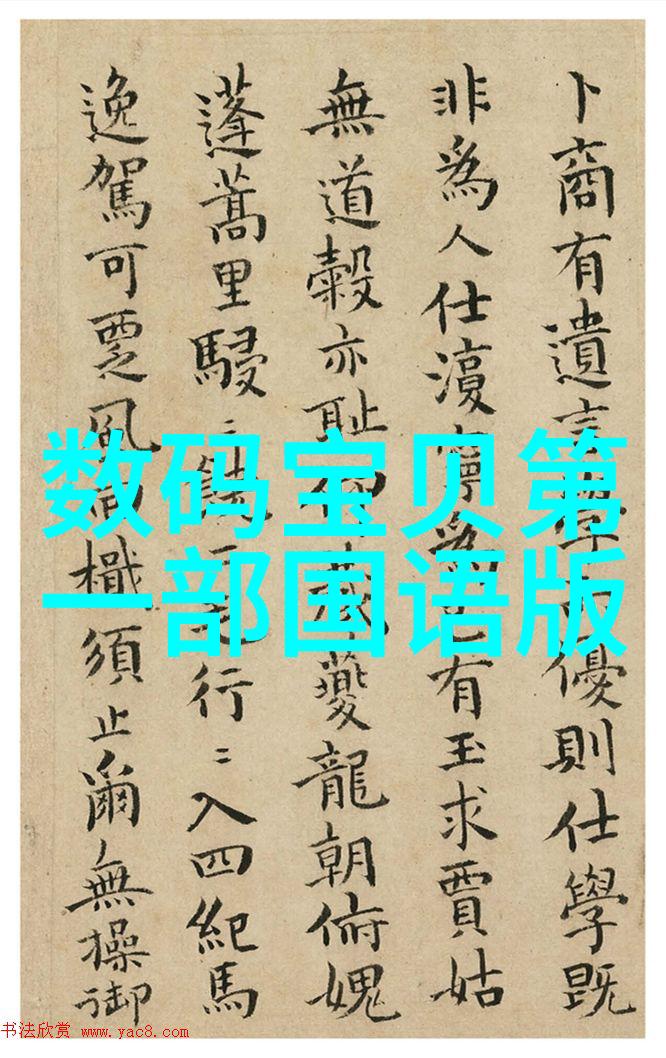 卜商有遺言優則仕學既
非為人仕寧為己有玉求賈姑
無道穀亦恥藏夔龍朝俯媿
蓬蒿里駸=行=入四紀馬
逸駕可覂風檝須止爾無操御
数码宝贝第
一部国语版
书法欣赏 www.yac8.com